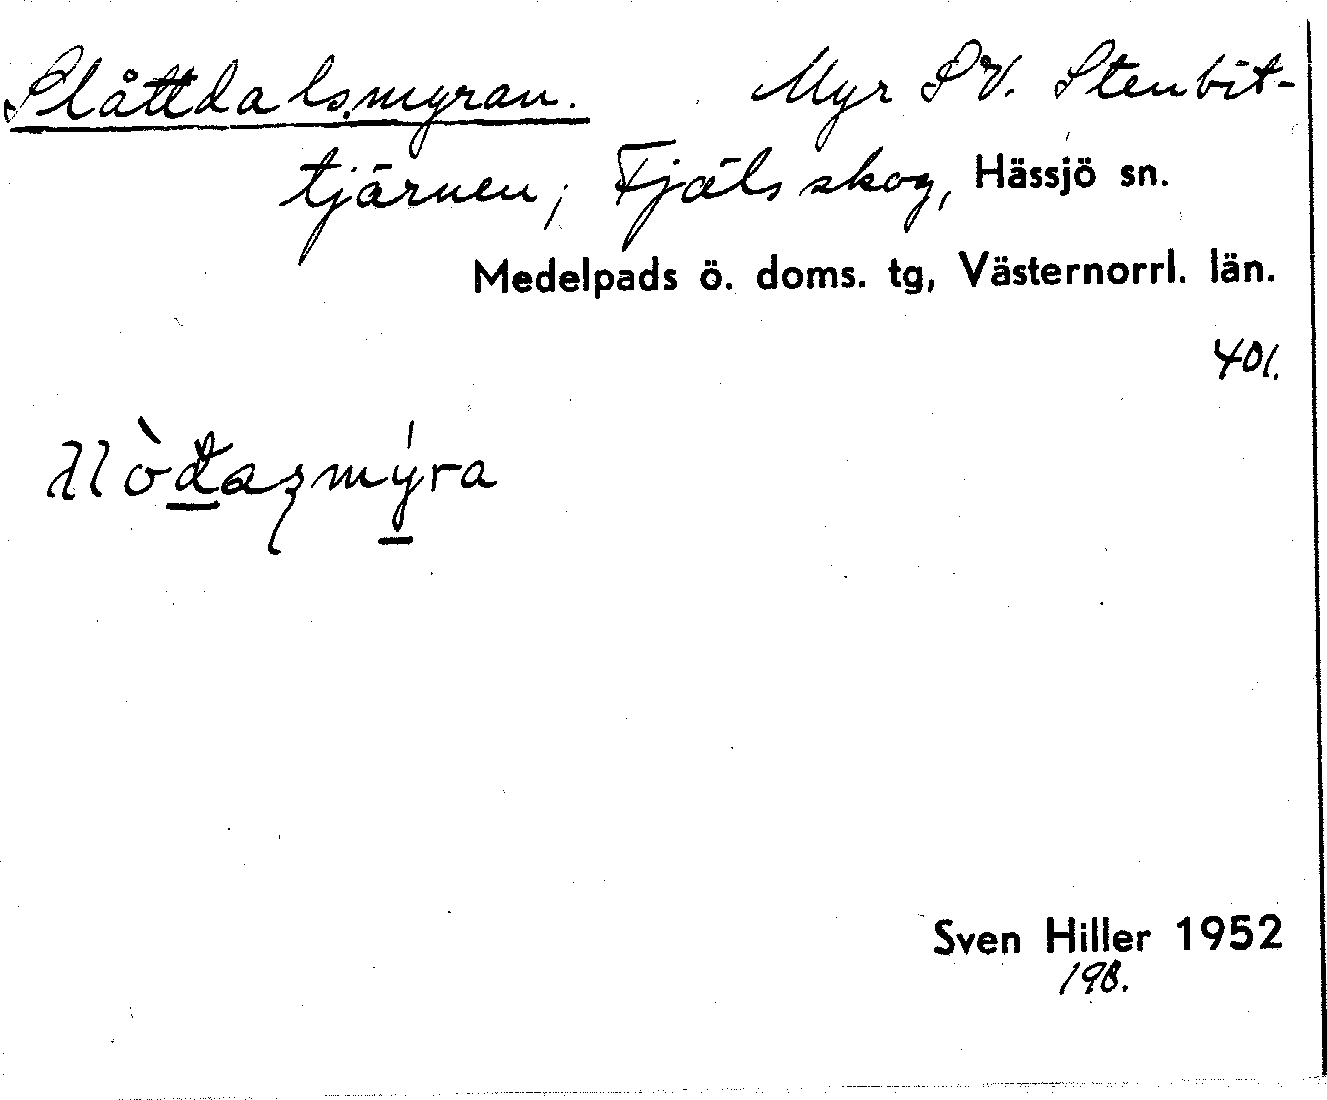 Slåttdalsmyran. Myr SV. Stenbit-
tjärnen, Fjäls skog, Hässjö sn.
Medelpads ö. doms. tg, Västernorrl. län.
401.
Sven Hiller 1952
198.